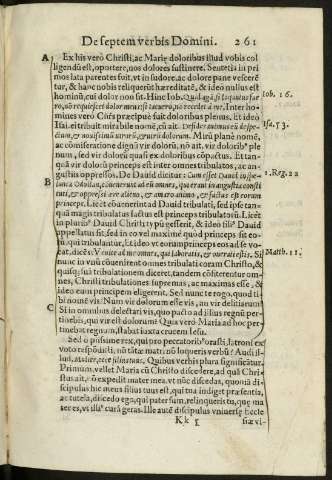 De septem verbis Domini. 261
A Ex his verò Christi, ac Marię doloribus illud vobis col
ligendũ est, oportere, nos dolores sustinere. Sentētia in pri
mos lata parentes fuit, vt in sudore, ac dolore pane vescerē
tur, & hanc nobis reliquerũt hæreditatē, & ideo nullus est
hominũ, cui dolor non sit. Hinc Iob. Quid agã? si loquutus fue
ro, nõ requiescet dolor meus, si tacuero, nõ recedet à me. Inter ho
Iob. 16.
mines verò Chrũs præcipuè fuit doloribus plenus. Et ideo
Isai. ei tribuit mirabile nomē, cũ ait. Desiderauimus eũ despe
Isa. 53.
ctum, & nouissimũ virorũ, & virũ dolorum. Mirũ planè nomē,
ac cõmiseratione dignũ virũ dolorũ, nõ ait, virũ dolorib' ple
num, sed virũ dolorũ quasi ex doloribus cõpactus. Et tan
quã vir dolorũ princeps est inter omnes tribulatos, ac an
gustiis oppressos. De Dauid dicitur:
1. Reg. 22
B
& oppressi ære alieno, & amaro animo, & factus est eorum
princeps. Licet cõuenerint ad Dauid tribulati, sed ipse tan
quã magis tribulatus factus est princeps tribulatorũ. Licèt
in plurib' Dauid Christi typũ gesserit, & ideo filius Dauid
appellatus sit, sed in eo vel maximè quod princeps sit eo
rũ, qui tribulantur, Et ideo vt eorum princeps eos ad se vo
cat, dicẽs: Venite ad me omnes, qui laboratis, & onerati estis. Si
Matth. 11.
nunc in vnũ cõuenirent omnes tribulati coram Christo, &
quisq; suã tribulationem diceret, tandem cõfiterentur om
nes, Christi tribulationes supremas, ac maximas esse, &
ideo eum principem eligerent. Sed nunc te rogo, quod ti
bi nouũ vis? Num vir dolorum esse vis, an vir delitiarum?
C Si in omnibus delectari vis, quo pacto ad filius regnũ per-
tinebis, qui vir est dolorum? Qua verò Maria ad hoc per
tinebat regnum, stabat iuxta crucem Iesu.
Sed ô piissime rex, qui pro peccatorib' orasti, latroni ex
voto respõdisti, nũ tãtæ matri nõ loqueris verbũ? Audi il
lius, mulier, ecce filius tuus. Quibus verbis plura significãtur.
Primum, vellet Maria cũ Christo discedere, ad quã Chri
stus ait, nõ expedit mater mea vt nũc discedas, quoniã di-
scipulus hic meus filius tuus est, qui tua indiget præsentia,
ac tutela, discedo ego, qui pater sum, relinqueris tu, quę ma
ter es, vt illius curã geras. Ille autē discipulus vniuersę Eccle
Kk 5 siæ vi-